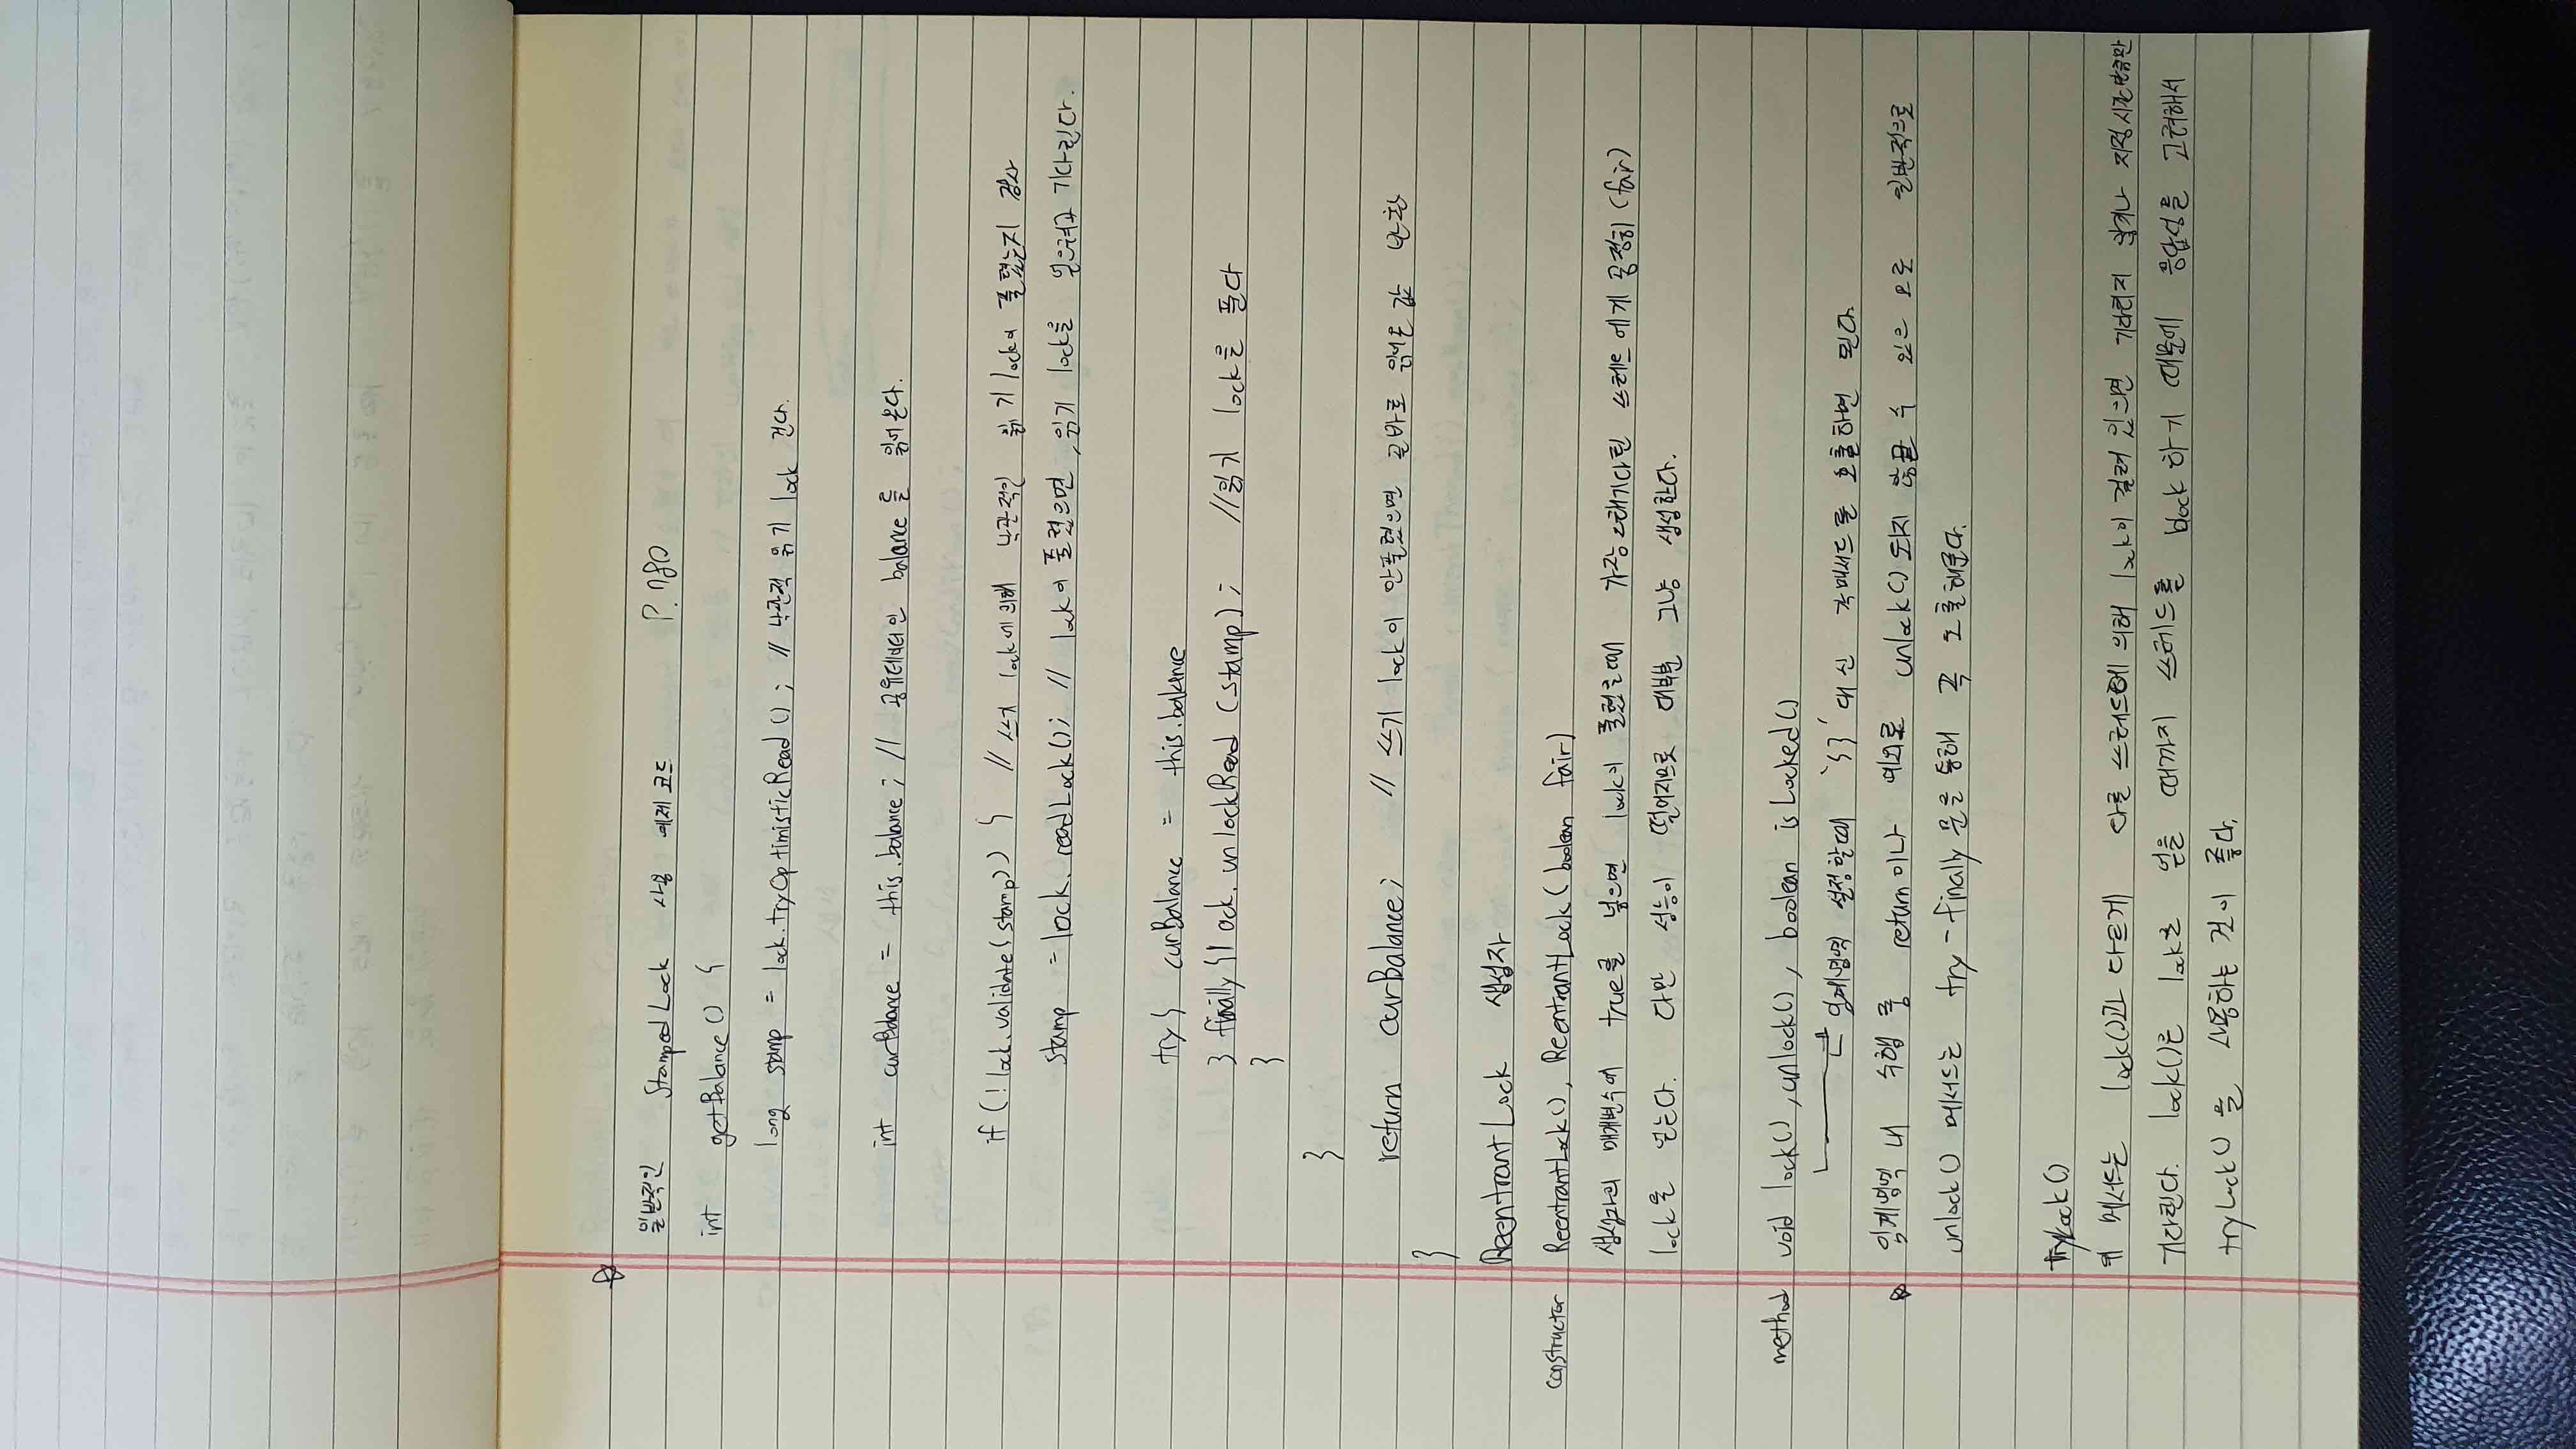 일반적인 StampedLock 사용 예제 코드 P. 780
int getBalance() {
long stamp = lock.tryOptimisticRead(); // 낙관적 읽기 lock 건다.
int curBalance = this.balance; // 공유데이터인 balance를 읽어온다.
if (!lock.validate(stamp)) { // 쓰기 lock에 의해 낙관적인 읽기 lock이 풀렸는지 검사
stamp = lock.readLock(); // lock이 풀렸으면, 읽기 lock을 얻으려고 기다린다.
try { curBalance = this.balance
} finally { lock.unlockRead (stamp); // 읽기 lock을 푼다
}
}
return curBalance; // 쓰기 lock이 안풀렸으면 곧바로 읽어온 값 반환
}
ReentrantLock 생성자
constructor ReentrantLock(), ReentrantLock (boolean fair)
생성자의 매개변수에 true를 넣으면 lock이 풀렸을때 가장 오래기다린 쓰레드에게 공정히 (fair)
lock을 얻는다. 다만 성능이 떨어지므로 대부분 그냥 생성한다.
method void lock(), unlock(), boolean isLocked()
임계영역 설정할때 '{ }' 대신 각메서드를 호출하면 된다.
임계영역 내 수행 중 return이나 예외로 unlock() 되지 않을 수 있으 므로 일반적으로
unlock() 메서드는 try-finally 문을 통해 꼭 호출해준다.
tryLock()
위 메서드는 lock()과 다르게 다른 쓰레드에 의해 lock이 걸려 있으면 기다리지 않거나 지정시간만큼만
기다린다. lock()은 lock을 얻을 때까지 쓰레드를 block 하기 때문에 응답성을 고려해서
tryLock()을 사용하는 것이 좋다.